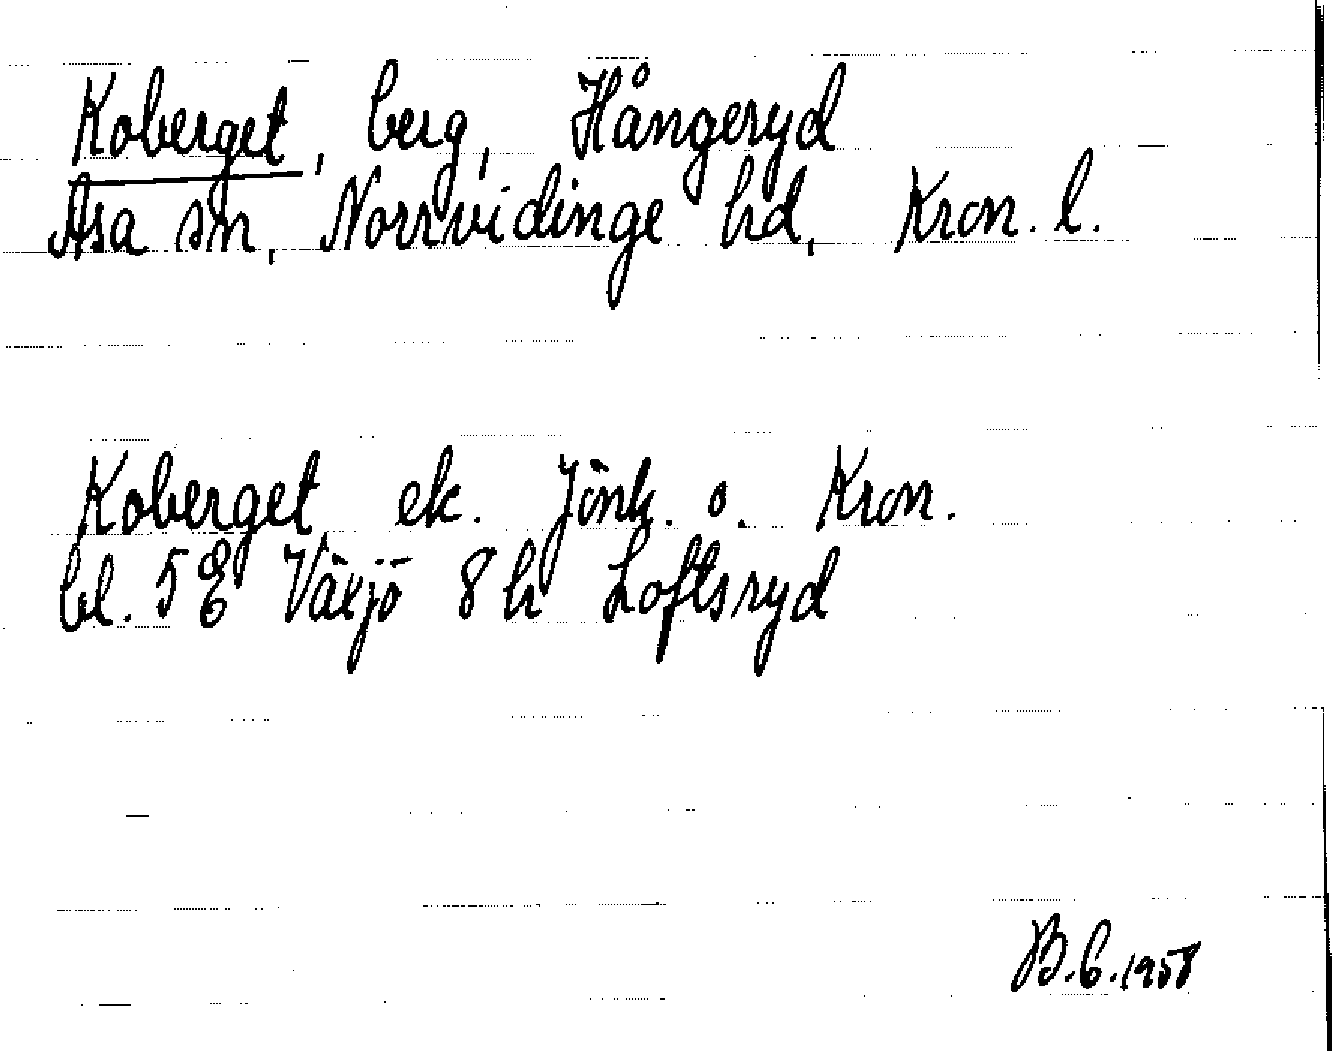 Koberget, berg, Hångeryd
Asa sn, Norrvidinge hd, Kron. l.
Koberget ek. Jönk. o. Kron.
bl. 5 E Växjö 8 h Loftsryd
B.C.1958